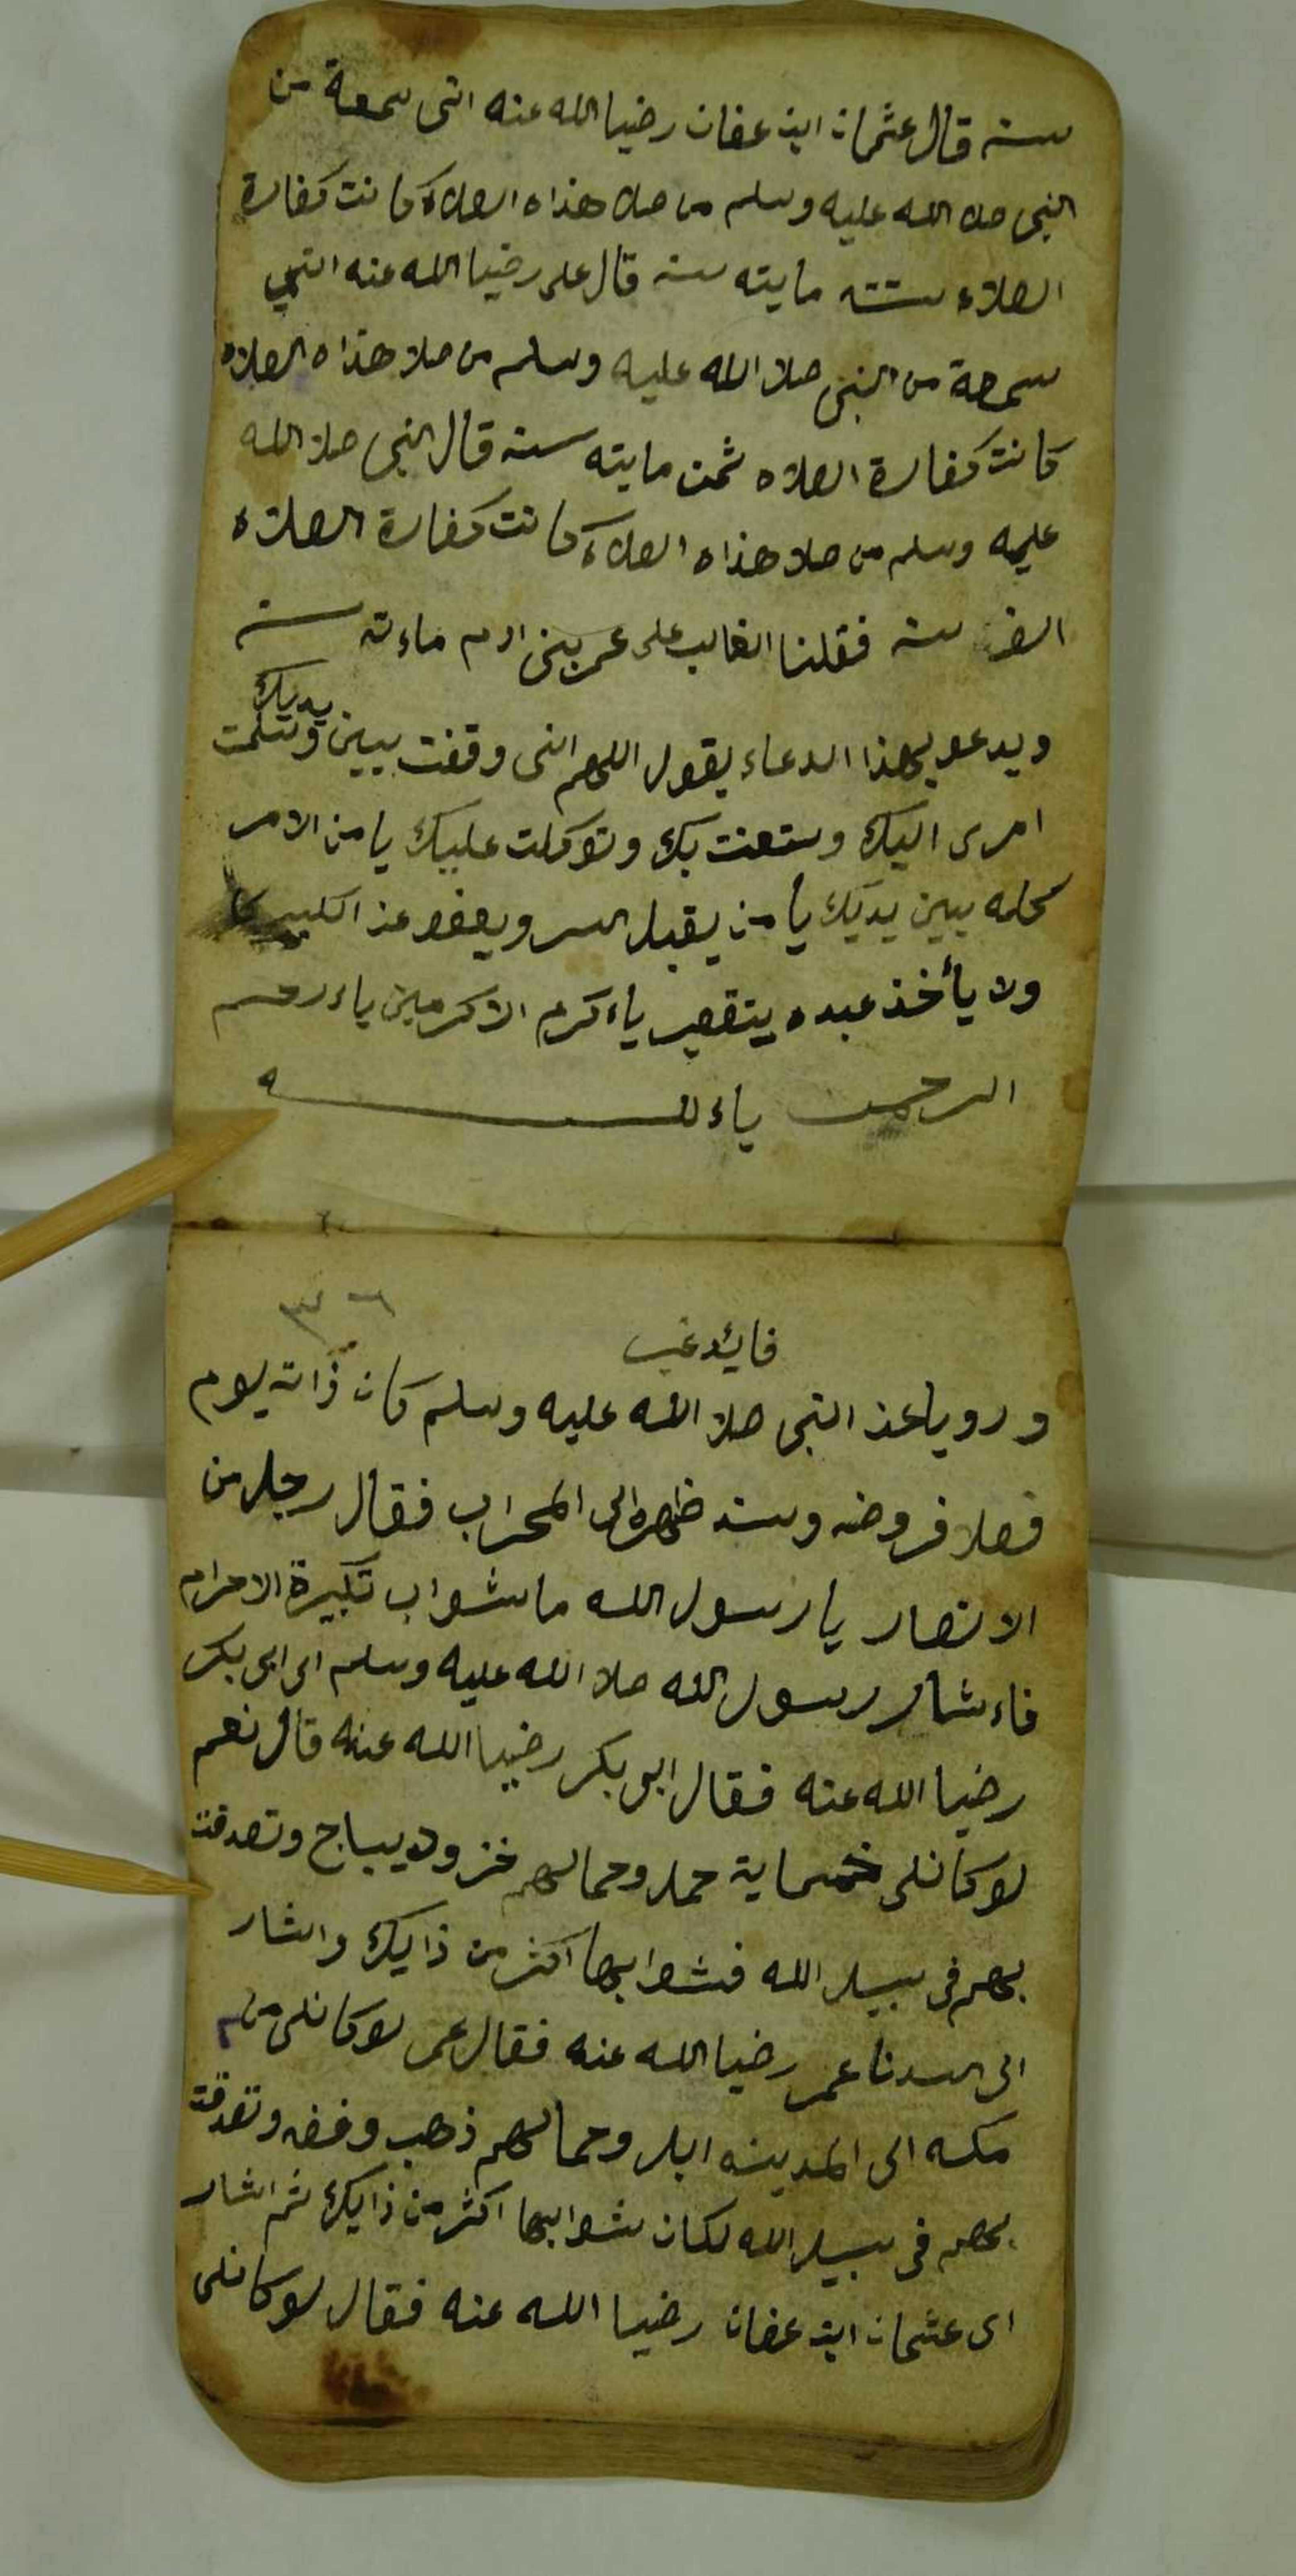 سنه قال عثمان ابن عفان رضيا الله عنه انى سمعة من
النبى صلا الله عليه وسلم من صلا هذاه الصلاة كانت كفارة
الصلاه ستته مايته سنه قال على رضيا الله عنه انني
سمعة من النبى صلا الله عليه وسلم من صلا هذاه الصلاه
كانت كفارة الصلاه ثمن مايته سنه قال النبى صلا الله
عليه وسلم من صلا هذاه الصلاة كانت كفارة الصلاه
الف سنه فقلنا الغالب على عمر بنى ادم ماءته سنه
ويدعو بهذا الدعاء يقول اللهم انى وقفت ببين يديك وسلمت
امرى اليك وستعنت بك وتوكلت عليك يا من الامر
كله ببين يديك يا من يقبل اليسر ويعفو عن الكبير
ولا يأخذ عبده يتقصير ياءكرم الاكرمين ياءرحم
الرحمن ياءلله
٣٦
فايده
ورويا عن النبى صلا الله عليه وسلم كان ذاته يوم
فصلا فروضه وسند ظهره الى المحراب فقال رجل من
الانصار يا رسول الله ما شواب تكبيرة الاحرام
فاءشار رسول الله صلا الله عليه وسلم الى ابى بكر
رضيا الله عنه فقال ابو بكر رضيا الله عنه قال نعم
لو كانلى خمسماية حمل وحمالهم خز وديباج وتصدقت
بهم فى سبيل الله فشوابها اكثر من ذايك واشار
الى سدنا عمر رضيا الله عنه فقال عمر لو كانلى من
مكه الى المدينه ابل وحمالهم ذهب وفضه وتصدقت
بهم فى سبيل الله لكان شوابها اكثر من ذايك ثم اشار
اى عثمان ابن عفان رضيا الله عنه فقال لو كانلى